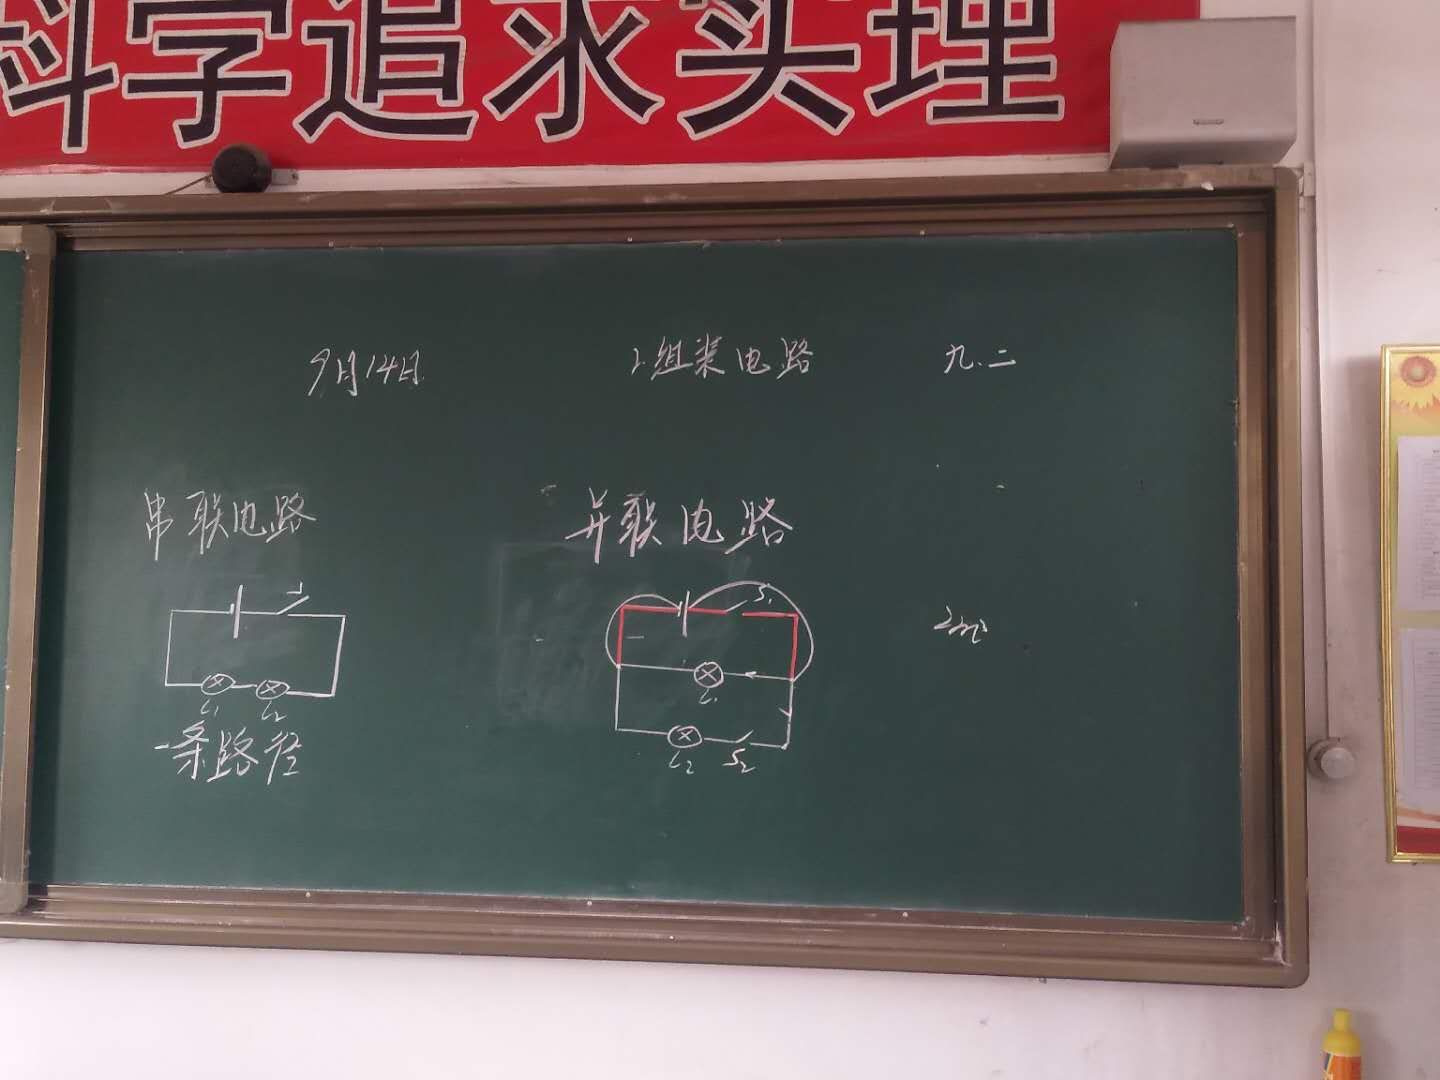 科学追求真理
9月14日 1.组装电路 九.二
串联电路 并联电路
S₁
L₁ L₂
L₁
L₂ S₂
一条路径